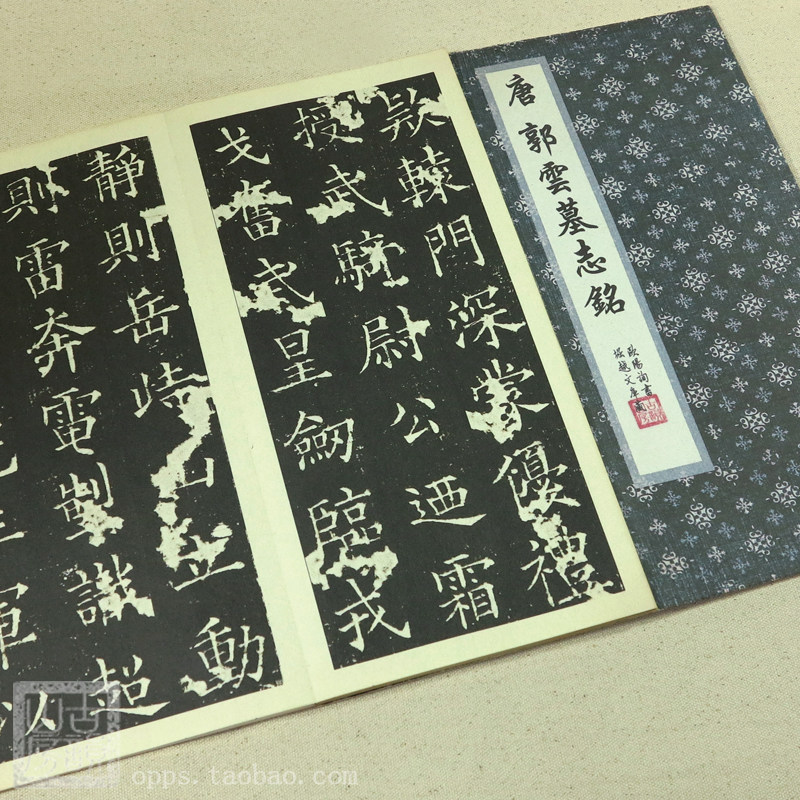 唐 郭雲墓志銘
歐陽詢書
堀越文庫
欵轅門深蒙優禮
授武騎尉公迺霜
戈奮武星劒臨戎
靜則岳峙山立動
則雷奔電掣識超
軍
opps.taobao.com